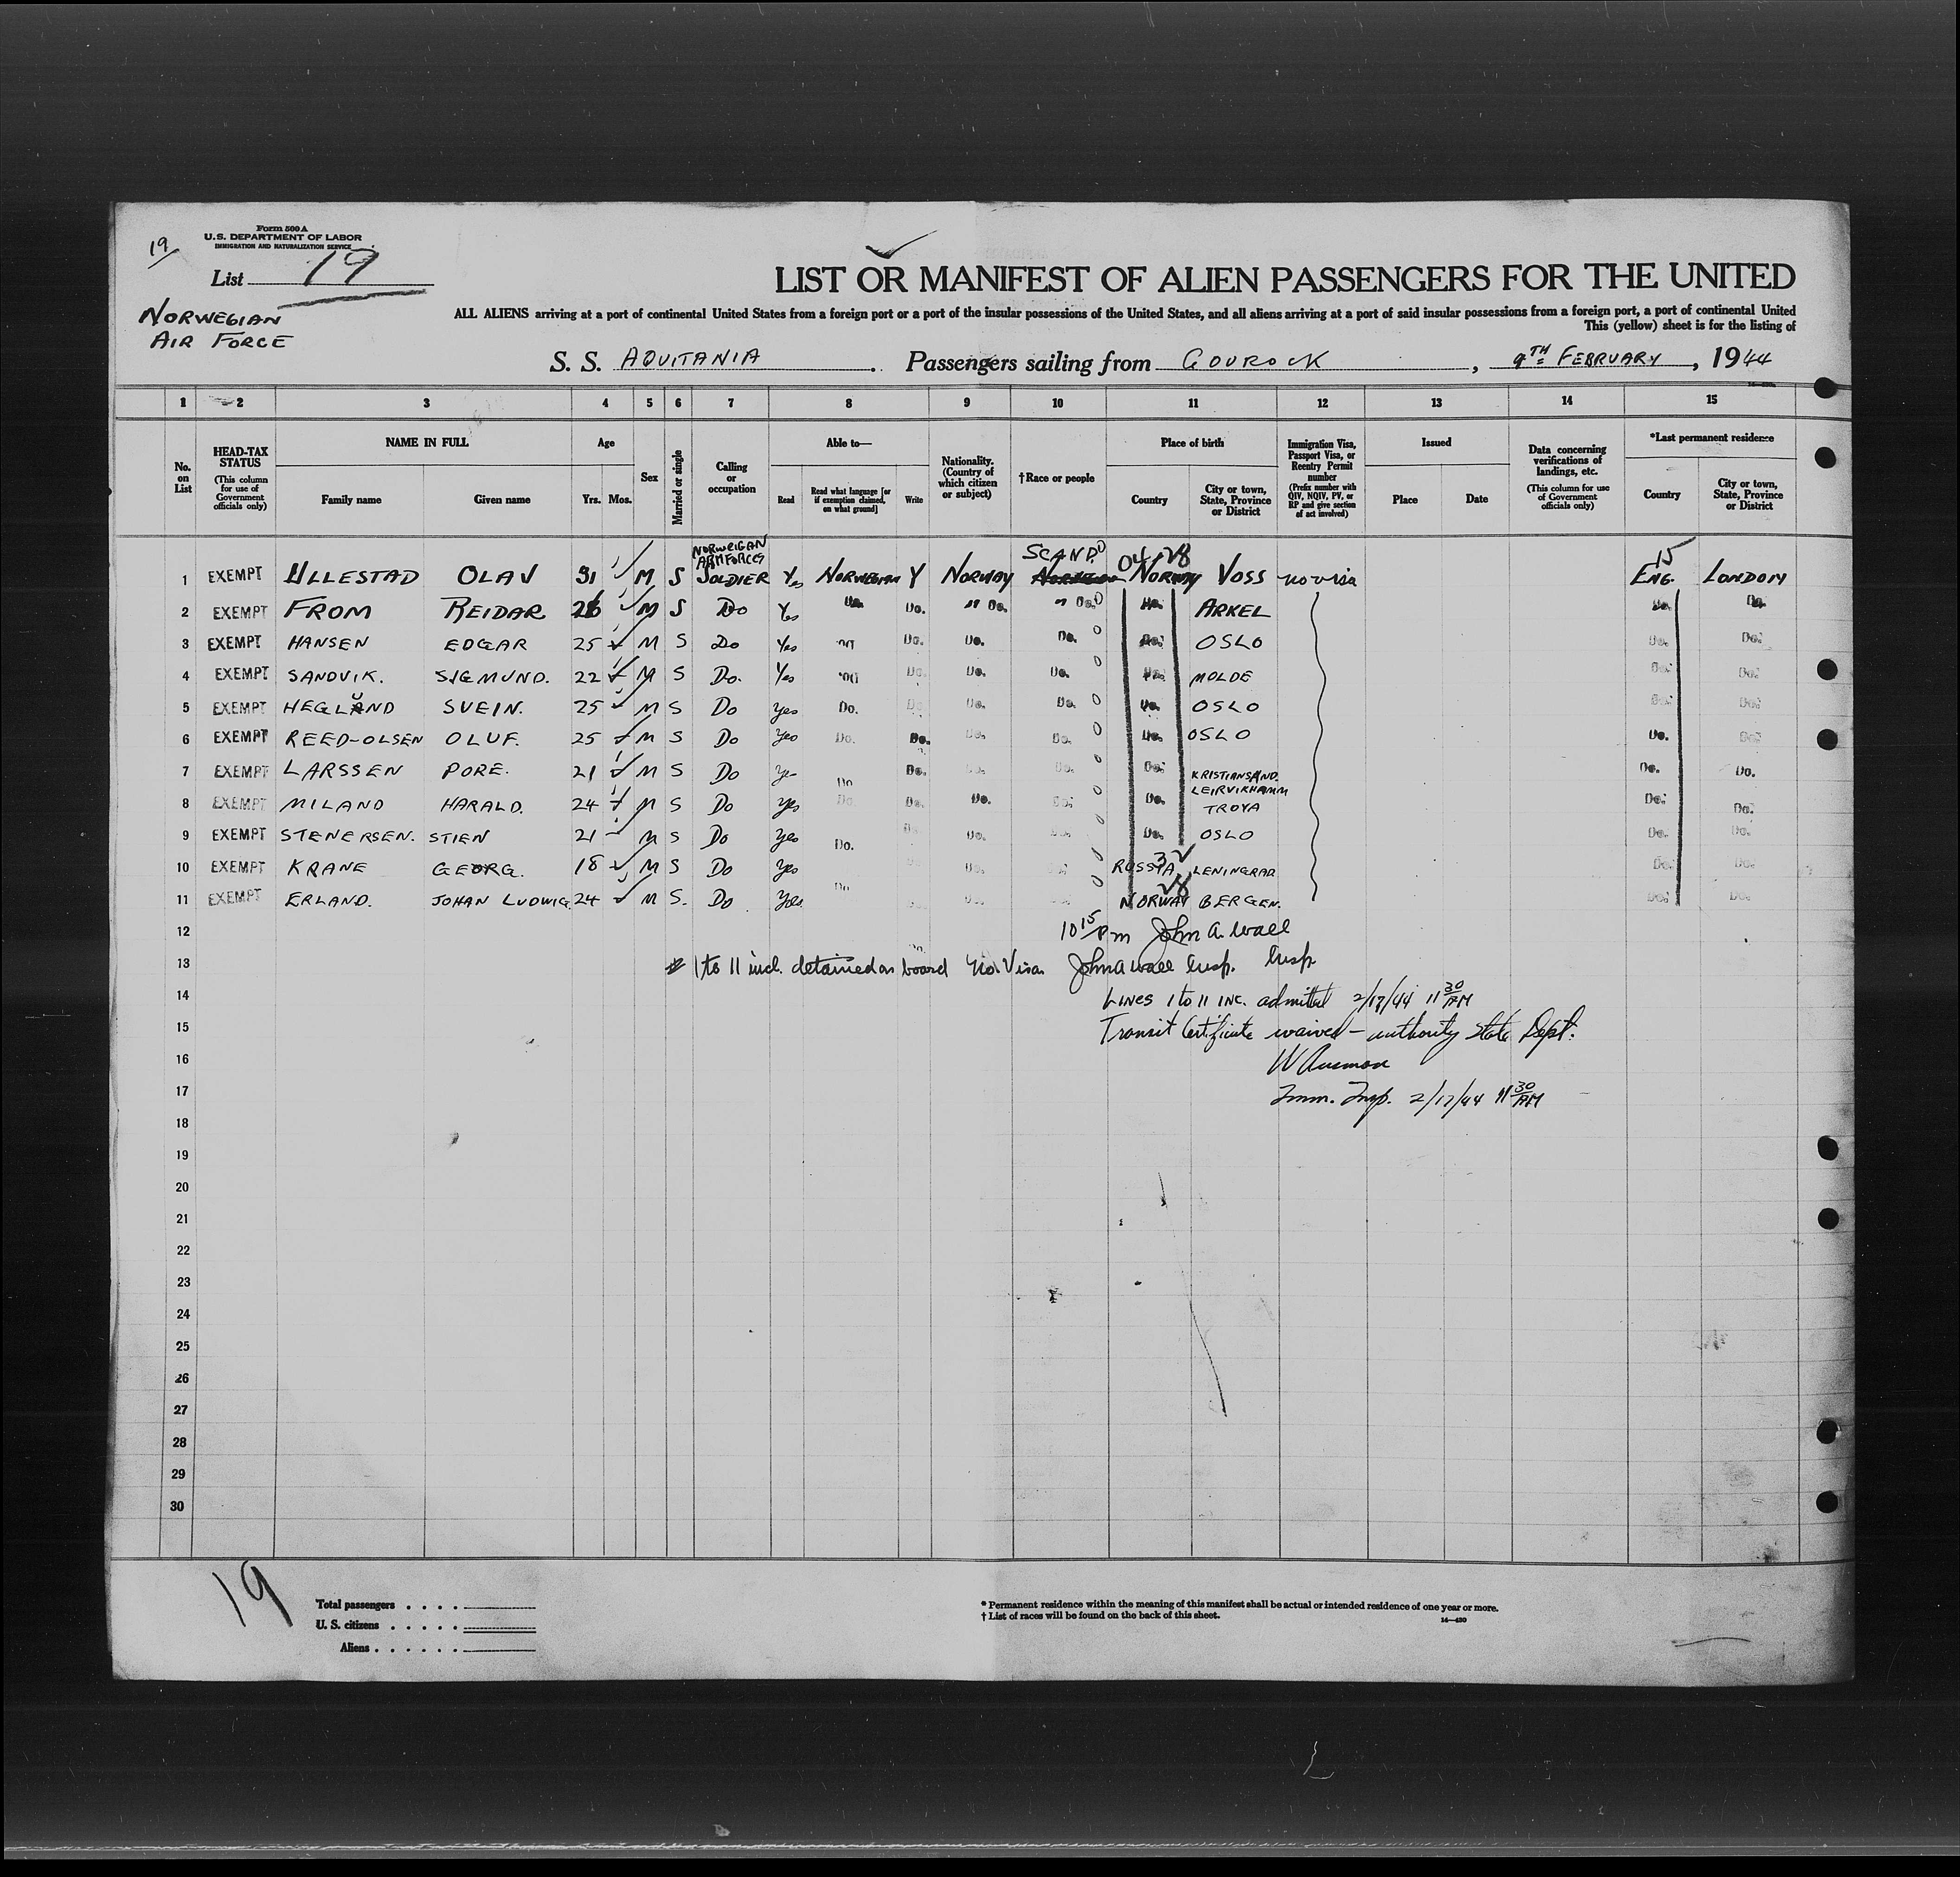 Form 500 A
U.S. DEPARTMENT OF LABOR
IMMIGRATION AND NATURALIZATION SERVICE
19
List 19
NORWEGIAN
AIR FORCE
LIST OR MANIFEST OF ALIEN PASSENGERS FOR THE UNITED
ALL ALIENS arriving at a port of continental United States from a foreign port or a port of the insular possessions of the United States, and all aliens arriving at a port of said insular possessions from a foreign port, a port of continental United
This (yellow) sheet is for the listing of
S. S. AQUITANIA. Passengers sailing from GOUROCK, 9TH FEBRUARY, 1944
1 2 3 4 5 6 7 8 9 10 11 12 13 14 15
No. on List
HEAD-TAX STATUS (This column for use of Government officials only)
NAME IN FULL Family name Given name
Age Yrs. Mos.
Sex
Married or single
Calling or occupation
Able to— Read Read what language [or if exemption claimed, on what ground] Write
Nationality. (Country of which citizen or subject)
†Race or people
Place of birth Country City or town, State, Province or District
Immigration Visa, Passport Visa, or Reentry Permit number (Prefix number with QIV, NQIV, PV, or RP and give section of act involved)
Issued Place Date
Data concerning verifications of landings, etc. (This column for use of Government officials only)
*Last permanent residence Country City or town, State, Province or District
NORWEIGAN ARM FORCES SCAND. 0 04 V8 15
1 EXEMPT ULLESTAD OLAV 31 M S SOLDIER Yes NORWEGIAN Y NORWAY NORWAY VOSS no visa ENG. LONDON
2 EXEMPT FROM REIDAR 26 M S Do Yes Do. Do. " Do. " Do. 0 Do. ARKEL Do. Do.
3 EXEMPT HANSEN EDGAR 25 M S Do Yes Do. Do. Do. 0 Do. OSLO Do. Do.
4 EXEMPT SANDVIK. SIGMUND. 22 M S Do. Yes Do. Do. Do. 0 Do. MOLDE Do. Do.
5 EXEMPT HEGLAND SVEIN. 25 M S Do Yes Do. Do. Do. Do. 0 Do. OSLO Do. Do.
6 EXEMPT REED-OLSEN OLUF. 25 M S Do Yes Do. Do. Do. Do. 0 Do. OSLO Do. Do.
7 EXEMPT LARSSEN PORE. 21 M S Do Yes Do. Do. Do. Do. 0 Do. KRISTIANSAND. Do. Do.
8 EXEMPT MILAND HARALD. 24 M S Do Yes Do. Do. Do. Do. 0 Do. LEIRVIKHAMM TROYA Do. Do.
9 EXEMPT STENERSEN. STIEN 21 M S Do Yes Do. Do. Do. 0 Do. OSLO Do. Do.
10 EXEMPT KRANE GEORG. 18 M S Do Yes Do. 0 RUSSIA 3 LENINGRAD Do. Do.
11 EXEMPT ERLAND. JOHAN LUDWIG. 24 M S. Do Yes Do. Do. Do. 0 NORWAY V8 BERGEN. Do. Do.
12 10 15/PM John A. Wall
13 # 1 to 11 incl. detained on board No. Visa. John A Wall Insp. Insp.
14 LINES 1 to 11 INC. admitted 2/17/44 11 30 AM
15 Transit Certificate waived — authority State Dept.
16
17 Imm. Insp. 2/17/44 11 30 AM
18
19
20
21
22
23
24
25
26
27
28
29
30
19
Total passengers . . . .
U. S. citizens . . . . .
Aliens . . . . . .
* Permanent residence within the meaning of this manifest shall be actual or intended residence of one year or more.
† List of races will be found on the back of this sheet.